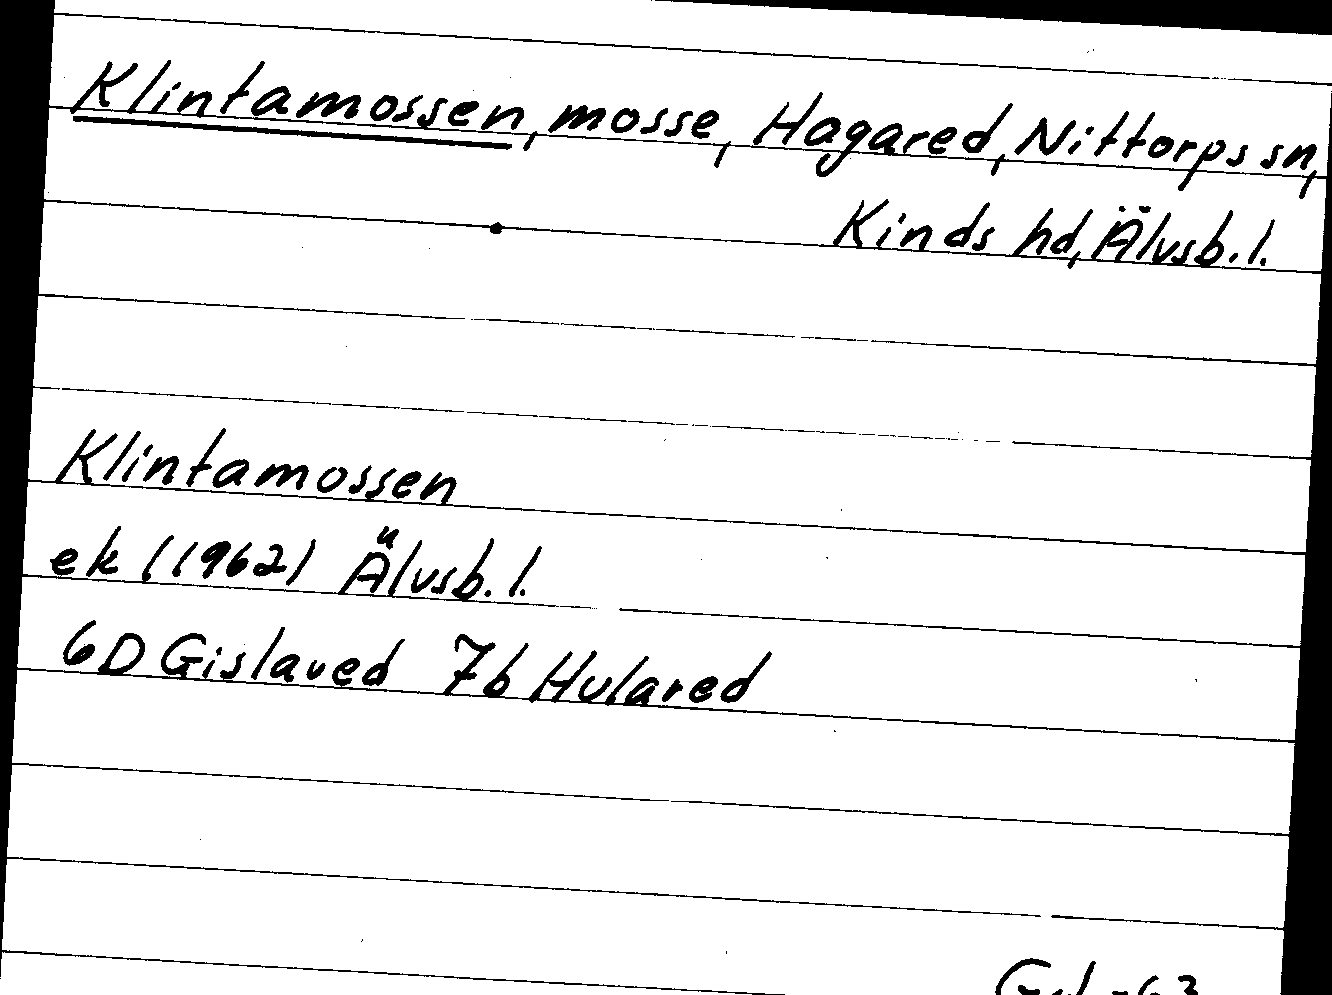 Klintamossen, mosse, Hagared, Nittorps sn,
Kinds hd, Älvsb. l.
Klintamossen
ek (1962) Älvsb. l.
6D Gislaved 7b Hulared